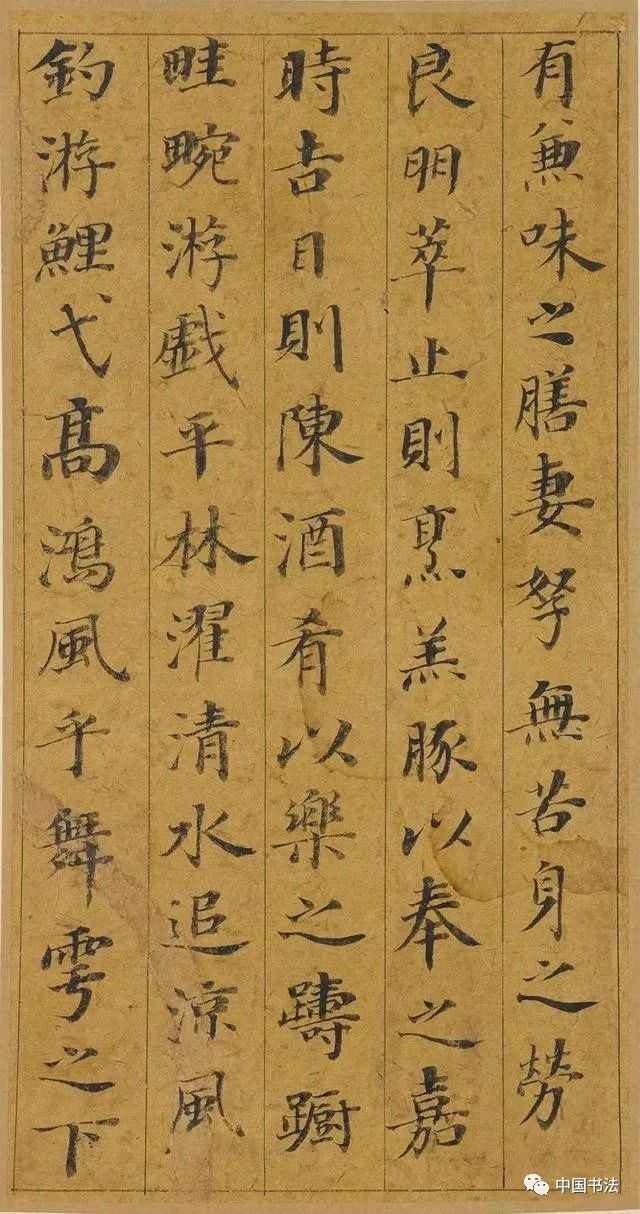 有兼味之膳妻孥無苦身之勞
良朋萃止則烹羔豚以奉之嘉
時吉日則陳酒肴以樂之躊躕
畦畹游戲平林濯清水追涼風
釣游鯉弋高鴻風乎舞雩之下
中国书法